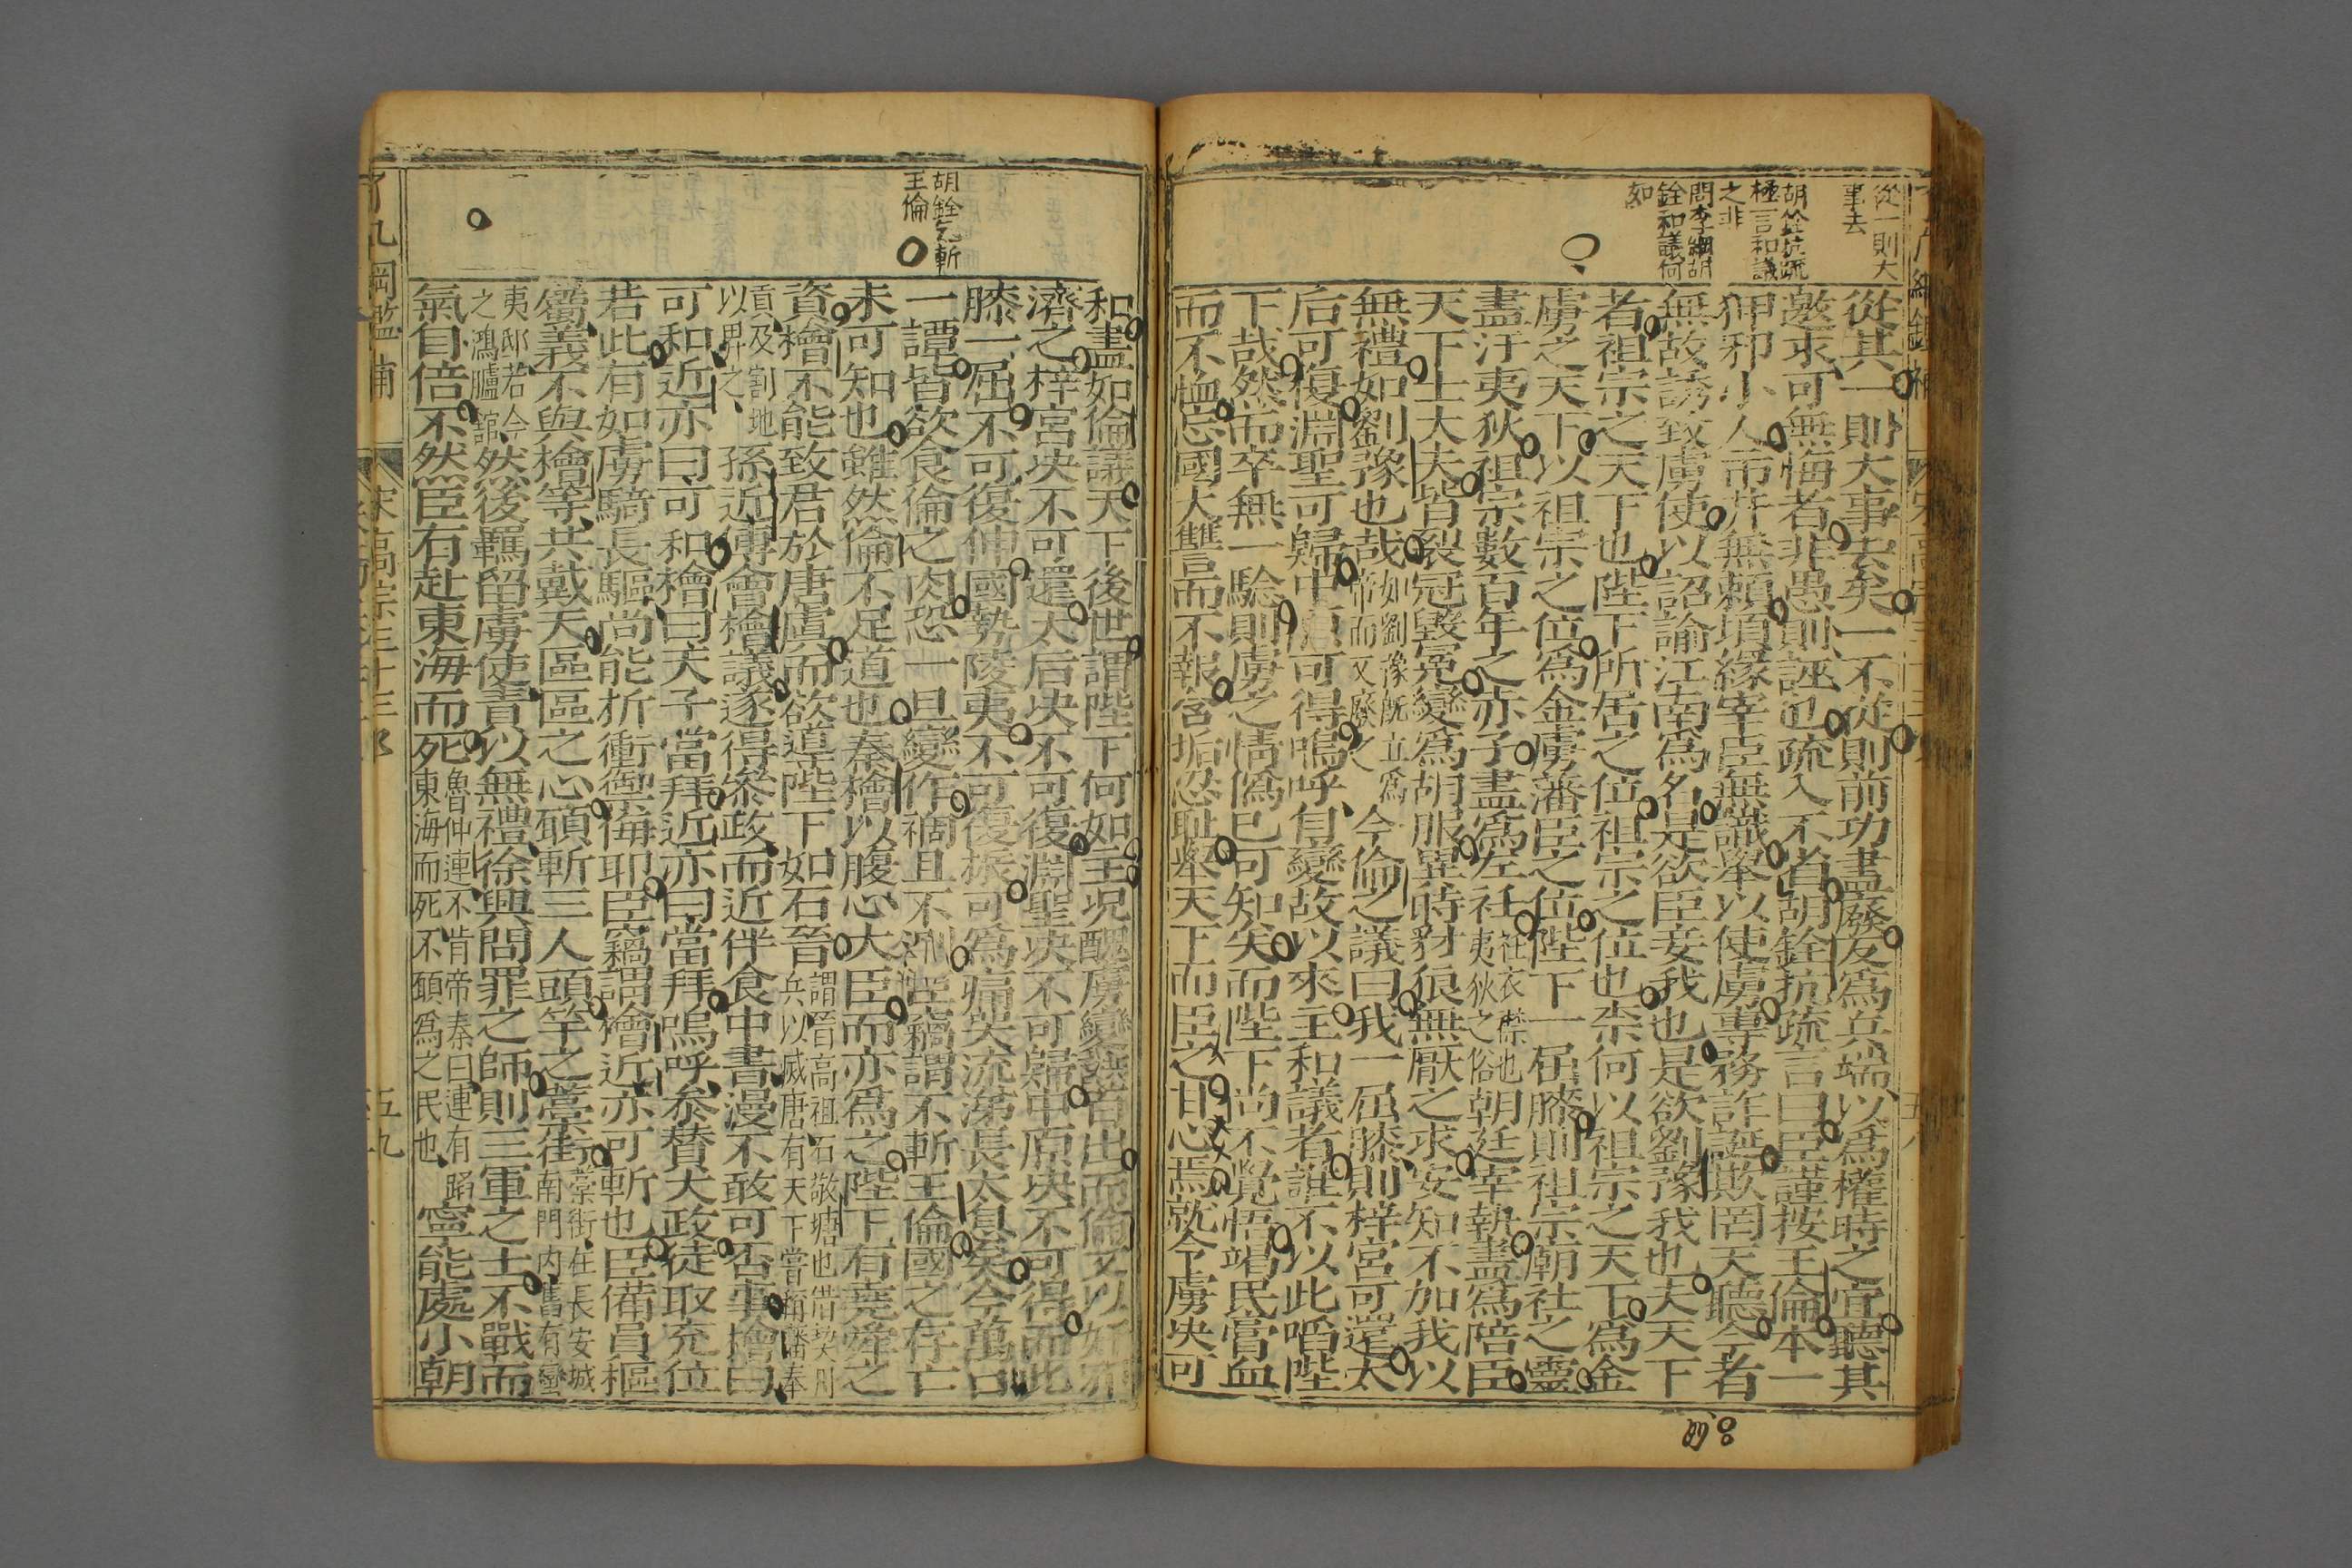 從一則大
事去
胡銓抗疏
極言和議
之非
問李綱胡
銓和議何
如
從其一則大事去矣一不從則前功盡廢反爲兵端以爲權時之宜聽其
邀求可無悔者非愚則誣也疏入不省胡銓抗疏言曰臣謹按王倫本一
狎邪小人市井無賴頃緣宰臣無識舉以使虜專務詐誕欺罔天聽今者
無故誘致虜使以詔諭江南爲名是欲臣妾我也是欲劉豫我也夫天下
者祖宗之天下也陛下所居之位祖宗之位也柰何以祖宗之天下爲金
虜之天下以祖宗之位爲金虜藩臣之位陛下一屈膝則祖宗廟社之靈
盡汙夷狄祖宗數百年之赤子盡爲左衽
衽衣襟也
夷狄之俗
朝廷宰執盡爲陪臣
天下士大夫皆裂冠毀冕變爲胡服異時豺狼無厭之求安知不加我以
無禮如劉豫也哉
如劉豫既立爲
帝而又廢之
今倫之議曰我一屈膝則梓宮可還太
后可復淵聖可歸中原可得嗚呼自變故以來主和議者誰不以此啗陛
下哉然而卒無一驗則虜之情僞已可知矣而陛下尚不覺悟竭民膏血
而不恤忘國大讐而不報含垢忍耻舉天下而臣之甘心焉就令虜决可
胡銓乞斬
王倫
和盡如倫議天下後世謂陛下何如主况醜虜變詐百出而倫又以奸邪
濟之梓宮决不可還太后决不可復淵聖决不可歸中原决不可得而此
膝一屈不可復伸國勢陵夷不可復振可爲痛哭流涕長太息矣今萬口
一譚皆欲食倫之肉恐一旦變作禍且不測臣竊謂不斬王倫國之存亡
未可知也雖然倫不足道也秦檜以腹心大臣而亦爲之陛下有堯舜之
資檜不能致君於唐虞而欲導陛下如石晉
謂晉高祖石敬塘也借契丹
兵以滅唐有天下嘗稱藩奉
貢及割地
以畀之
孫近傅會檜議遂得參政而近伴食中書漫不敢可否事檜曰
可和近亦曰可和檜曰天子當拜近亦曰當拜嗚呼參贊大政徒取充位
若此有如虜騎長驅尚能折衝禦侮耶臣竊謂檜近亦可斬也臣備員樞
屬義不與檜等共戴天區區之心願斬三人頭竿之藁街
藁街在長安城
南門内舊有蠻
夷邸若今
之鴻臚舘
然後羈留虜使責以無禮徐興問罪之師則三軍之士不戰而
氣自倍不然臣有赴東海而死
魯仲連不肯帝秦曰連有蹈
東海而死不願爲之民也
寧能處小朝
了凡綱鑑補
宋高宗三十三
五九